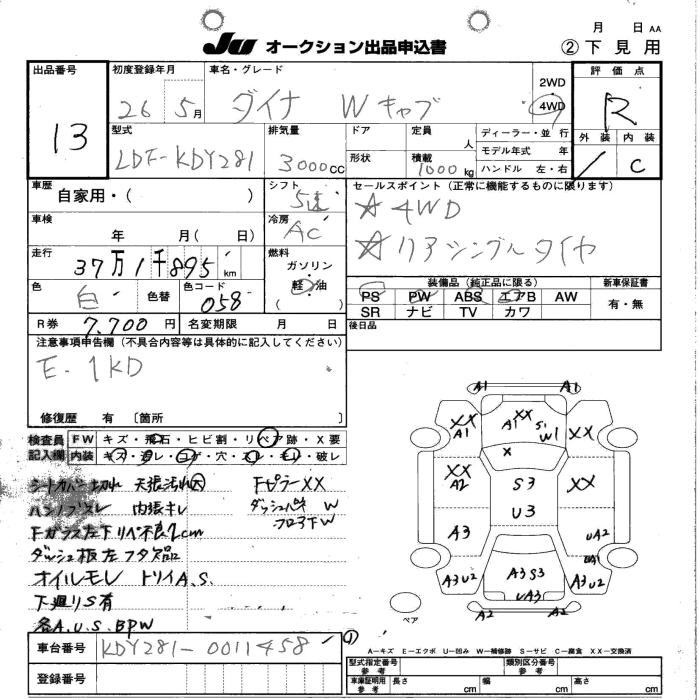 月 日 AA
JU オークション出品申込書 ②下見用
出品番号 初度登録年月 車名・グレード 2WD 4WD 評価点
13 26 5月 ダイナ Wキャブ R
型式 排気量 ドア 定員 人 ディーラー・並行 外装 内装
LDF-KDY281 3000cc 形状 積載 1000kg モデル年式 年 C
ハンドル 左・右
車歴 シフト セールスポイント(正常に機能するものに限ります)
自家用・( ) 5速 ☆4WD
車検 冷房 ☆リアシングルタイヤ
年 月( 日) AC
走行 燃料
37万1千895km ガソリン・
色 色コード 軽・油 装備品(純正品に限る) 新車保証書
白 色替 058 ( ) PS PW ABS エアB AW 有・無
SR ナビ TV カワ
R券 7,700円 名変期限 月 日 後日品
注意事項申告欄(不具合内容等は具体的に記入してください)
E-1KD
修復歴 有 〔箇所 〕
検査員 FW キズ・飛石・ヒビ割・リペア跡・X要
記入欄 内装 キズ・汚レ・コゲ・穴・スレ・モレ・破レ
シートカバー切れ 天張汚れ大 FピラーXX
ハンドルスレ 内張キレ
Fガラス左下リペ不良2cm
ダッシュ板左フタ欠品
オイルモレ
下廻りS有
各A.U.S.BPW
A1 A1
XX A1 XX A1 W1 XX
X
XX A2 S3 XX
U3
A3 UA2
UA1
A3U2 A3S3 A3U2
UA3
A2 A2
スペア
A-キズ E-エクボ U-凹み W-補修跡 S-サビ C-腐食 XX-交換済
車台番号 KDY281-0011458
登録番号
型式指定番号 参考 類別区分番号 参考
車庫証明用 参考 長さ cm 幅 cm 高さ cm